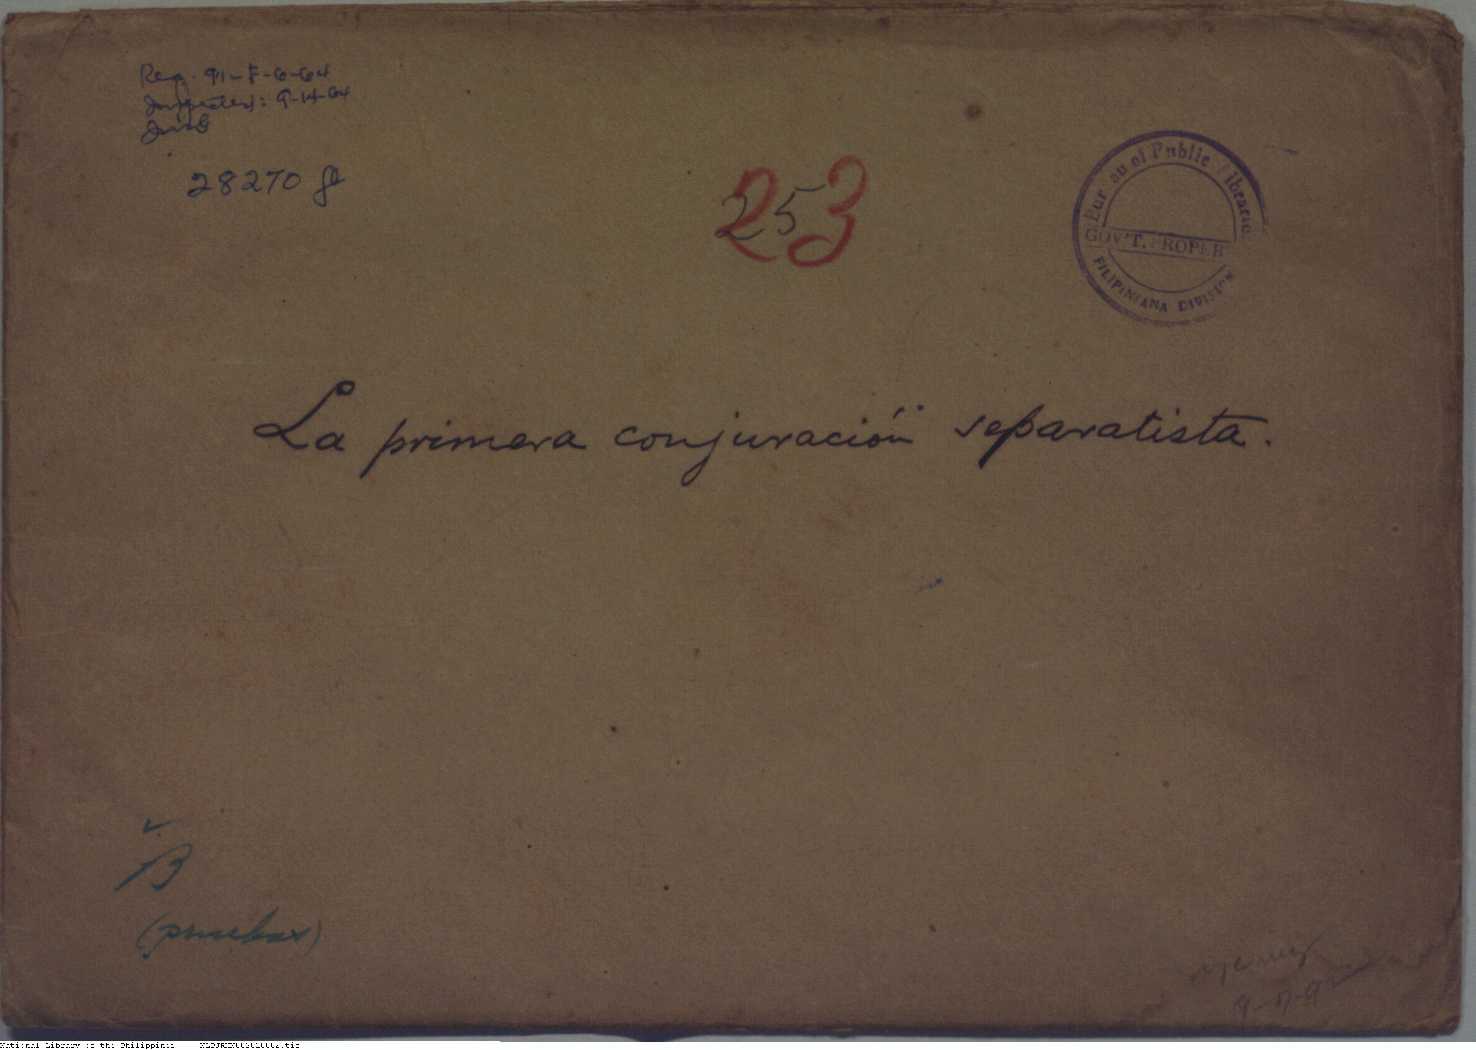 Reg. 91-F-6-64
Inspected: 9-14-64
28270
253
Bureau of Public Libraries
GOV'T. PROPER
FILIPINIANA DIVISION
La primera conjuración separatista.
B
(pruebas)
National Library of the Philippines